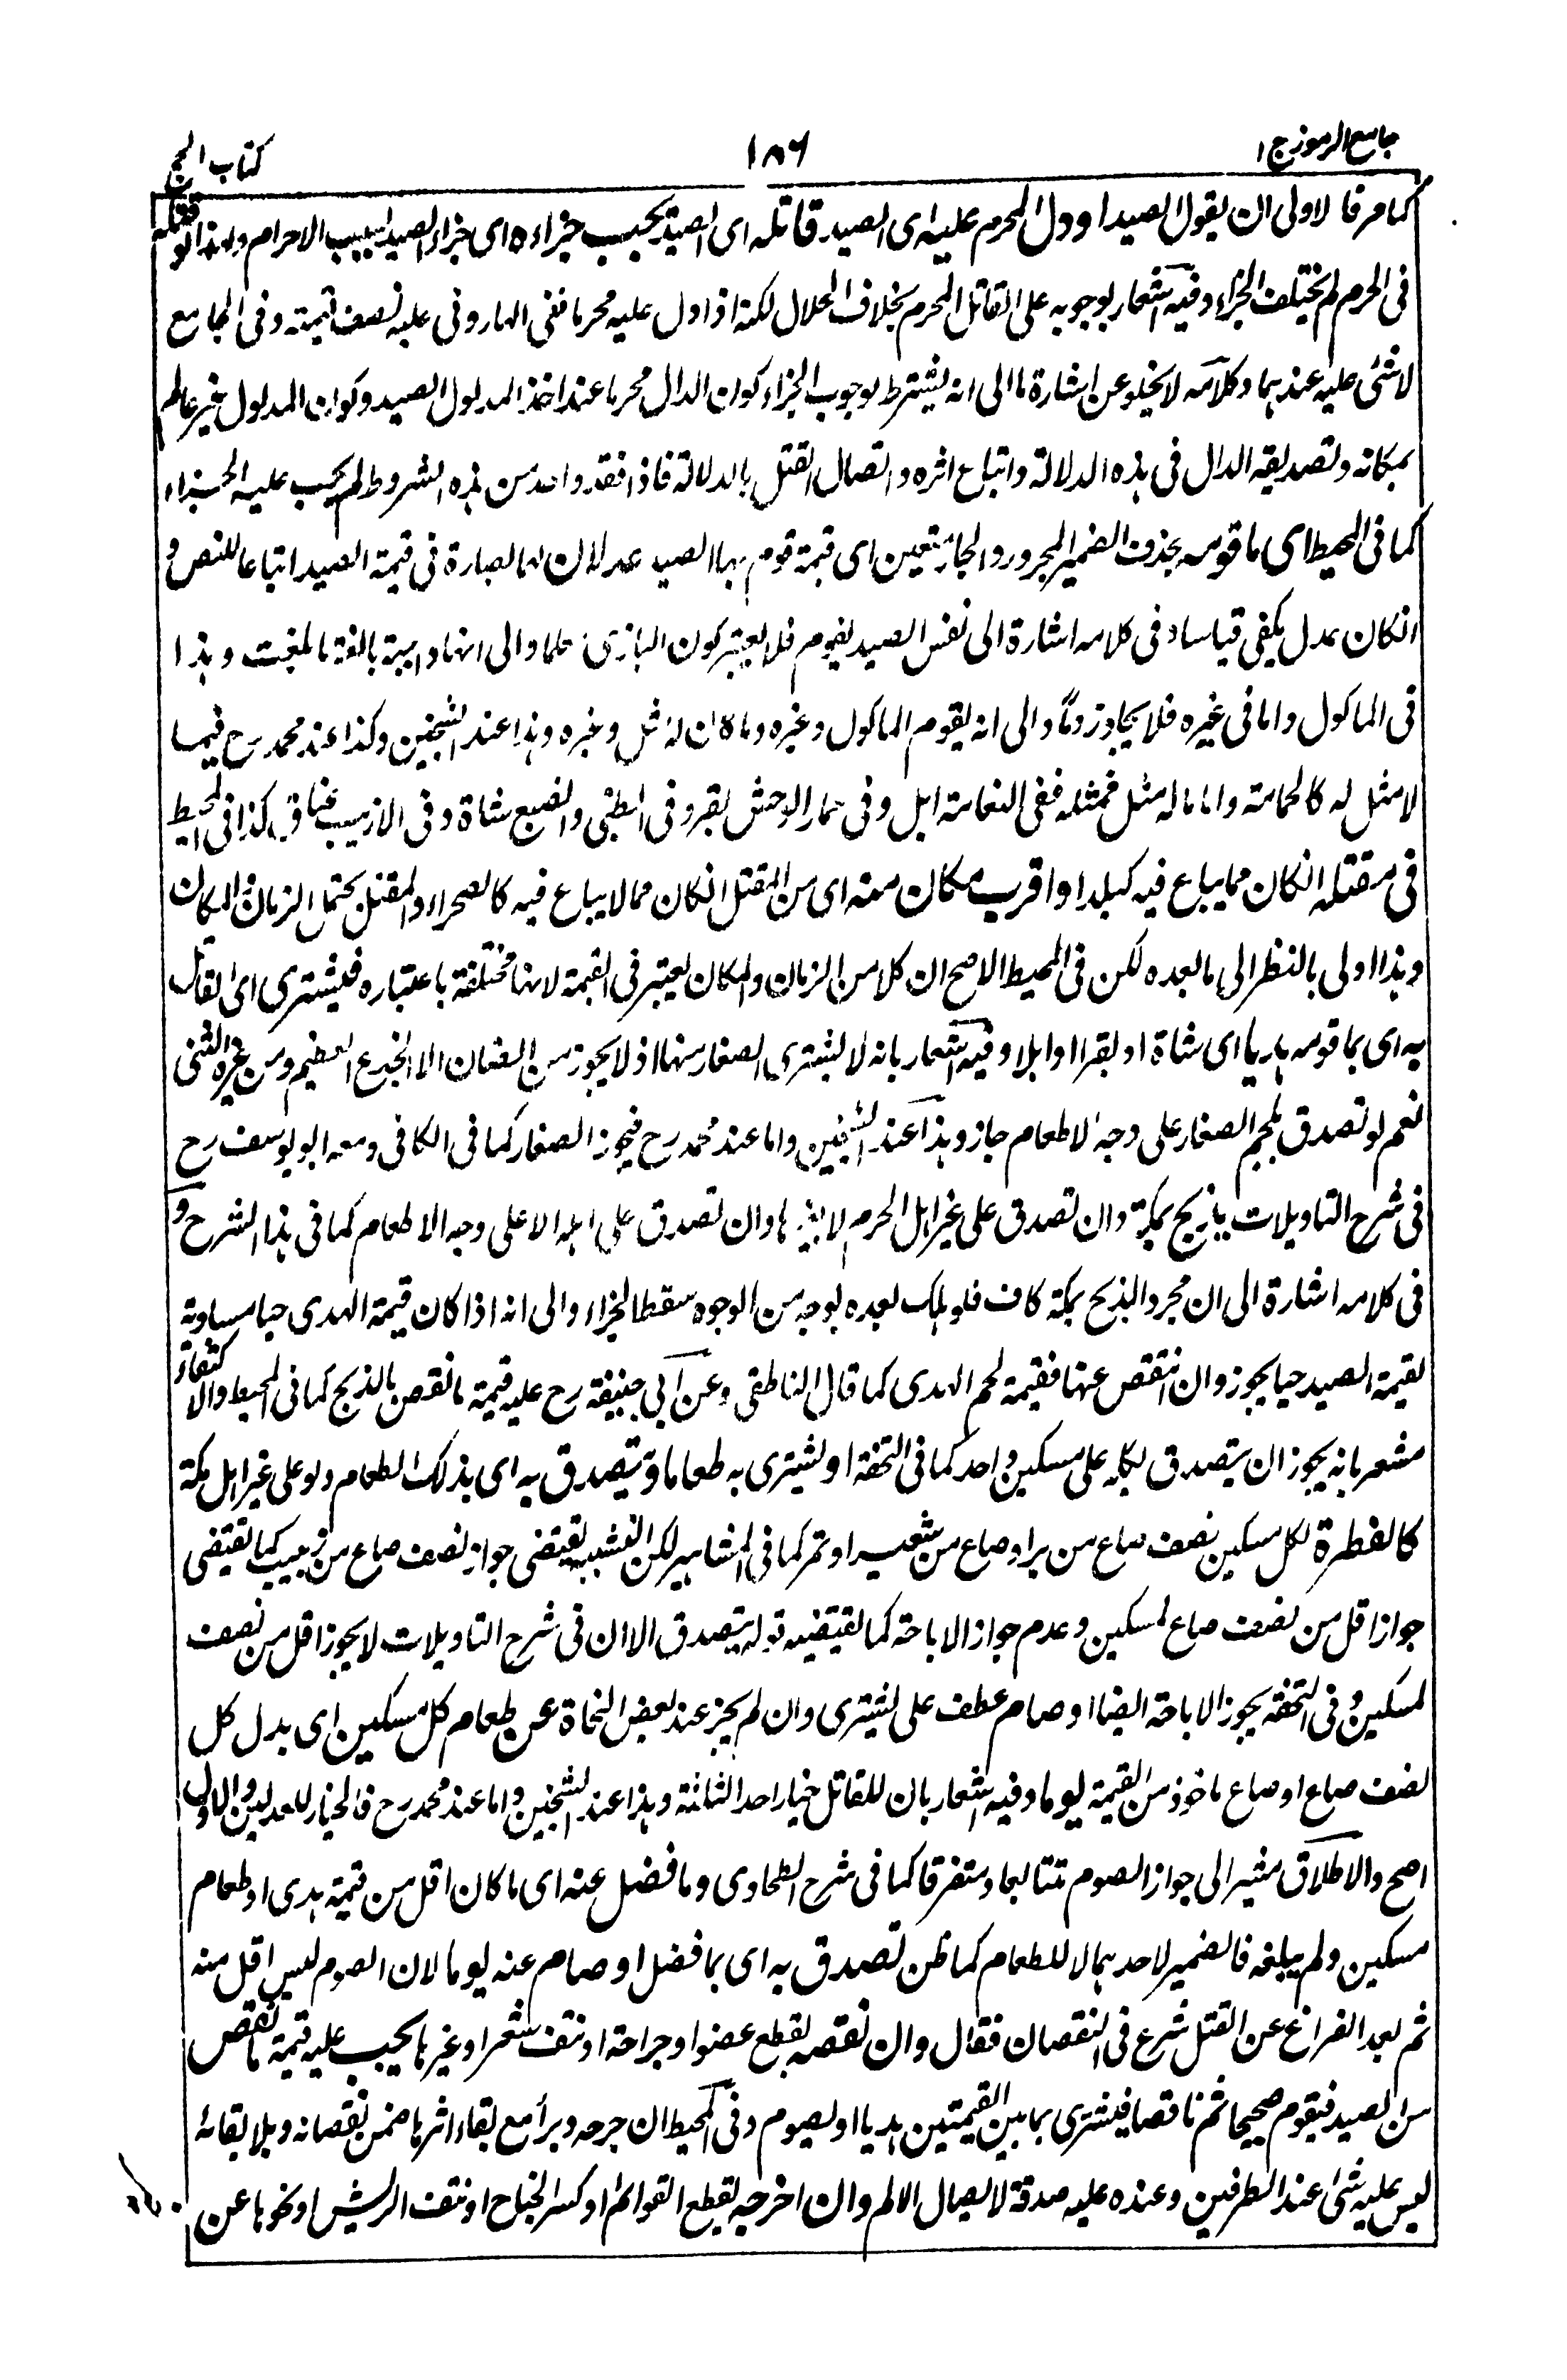 جامع الرموز ج ١
١٨٦
كتاب الحج
كما مر فالاولى ان يقول الصيد او دل المحرم عليه اى الصيد قاتله اى الصيد يجب جزاءه اى جزاء الصيد بسبب الاحرام ولهذا لو قتله
فى الحرم لم يختلف الجزاء وفيه اشعار بوجوبه على القاتل المحرم بخلاف الحلال لكنه اذا دل عليه محرما ففى الهارونى عليه نصف قيمته وفى الجامع
لا شئ عليه عندهما وكلامه لا يخلو عن اشارة ما الى انه يشترط لوجوب الجزاء كون الدال محرما عند اخذ المدلول الصيد وكون المدلول غير عالم
بمكانه وتصديقه الدال فى هذه الدلالة واتباع اثره واتصال القتل بالدلالة فاذا فقد واحد من هذه الشروط لم يجب عليه الجزاء
كما فى المحيط اى ما قومه بحذف الضمير المجرور والجار تعين اى قيمة قوم بها الصيد عدلان لهما بصارة فى قيمة الصيد اتباعا للنص و
انكان عدل يكفى قياسا وفى كلامه اشارة الى نفس الصيد يقوم فلا يعتبر كون البازى معلما والى انها واجبة بالغة ما بلغت وهذا
فى الماكول واما فى غيره فلا يجاوز دما والى انه يقوم الماكول وغيره وما كان له مثل وغيره وهذا عند الشيخين وكذا عند محمد رح فيما
لا مثل له كالحمامة واما ما له مثل فمثله ففى النعامة ابل وفى حمار الوحش بقر وفى الظبى والضبع شاة وفى الارنب عناق كذا فى المحيط
فى مقتله انكان مما يباع فيه كبلد او اقرب مكان منه اى من المقتل انكان مما لا يباع فيه كالصحراء والمقتل يحتمل الزمان والمكان
وهذا اولى بالنظر الى ما بعده لكن فى المحيط الاصح ان كلا من الزمان والمكان يعتبر فى القيمة لانها مختلفة باعتباره فيشترى اى القاتل
به اى بما قومه هديا اى شاة او بقرا او ابلا وفيه اشعار بانه لا يشترى الصغار منها اذ لا يجوز من الضان الا الجذع العظيم ومن غيره الثنى
نعم لو تصدق بلحم الصغار على وجه الاطعام جاز وهذا عند الشيخين واما عند محمد رح فيجوز الصغار كما فى الكافى ومعه ابو يوسف رح
فى شرح التاويلات يذبح بمكة وان تصدق على غير اهل الحرم لا بغيرها وان تصدق على اهله الا على وجه الاطعام كما فى هذا الشرح و
فى كلامه اشارة الى ان مجرد الذبح بمكة كاف فلو هلك بعده بوجه من الوجوه سقط الجزاء والى انه اذا كان قيمة الهدى حيا مساوية
لقيمة الصيد حيا يجوز وان انتقص عنها فقيمة لحم الهدى كما قال الناطفى وعن ابى حنيفة رح عليه قيمة ما نقص بالذبح كما فى المحيط والاكتفاء
مشعر بانه يجوز ان يتصدق بكله على مسكين واحد كما فى التحفة او يشترى به طعاما ويتصدق به اى بذلك الطعام ولو على غير اهل مكة
كالفطرة لكل مسكين نصف صاع من بر او صاع من شعير او تمر كما فى المشاهير لكن التشبيه يقتضى جواز نصف صاع من زبيب كما يقتضى
جواز اقل من نصف صاع لمسكين وعدم جواز الاباحة كما يقتضيه قوله يتصدق الا ان فى شرح التاويلات لا يجوز اقل من نصف
لمسكين وفى التحفة يجوز الاباحة ايضا او صام عطف على يشترى وان لم يجز عند بعض النحاة عن طعام كل مسكين اى بدل كل
نصف صاع او صاع ماخوذ من القيمة يوما وفيه اشعار بان للقاتل خيار احد الثلثة وهذا عند الشيخين واما عند محمد رح فالخيار للعدلين والاول
اصح والاطلاق مشير الى جواز الصوم متتابعا ومتفرقا كما فى شرح الطحاوى وما فضل عنه اى ما كان اقل من قيمة هدى او طعام
مسكين ولم يبلغه فالضمير لاحدهما لا للطعام كما ظن تصدق به اى بما فضل او صام عنه يوما لان الصوم ليس اقل منه
ثم بعد الفراغ عن القتل شرع فى النقصان فقال وان نقصه بقطع عضو او جراحة او نتف شعر او غيرها يجب عليه قيمة ما نقص
من الصيد فيقوم صحيحا ثم ناقصا فيشترى بما بين القيمتين هديا او يصوم وفى المحيط ان جرحه وبرأ مع بقاء اثرها ضمن نقصانه وبلا بقائه
ليس عليه شئ عند الطرفين وعنده عليه صدقة لايصال الالم وان اخرجه بقطع القوائم او كسر الجناح او نتف الريش او نحوها عن